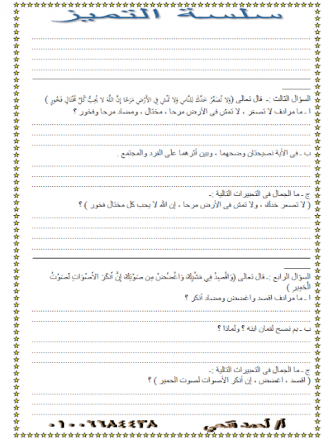 سلسلة التميز
السؤال الثالث :- قال تعالى (وَلَا تُصَعِّرْ خَدَّكَ لِلنَّاسِ وَلَا تَمْشِ فِي الْأَرْضِ مَرَحًا إِنَّ اللَّهَ لَا يُحِبُّ كُلَّ مُخْتَالٍ فَخُورٍ )
أ - ما مرادف لا تصعر ، لا تمش فى الأرض مرحا ، مختال ، ومضاد مرحا وفخور ؟
ب - فى الآية نصيحتان وضحهما ، وبين أثرهما على الفرد والمجتمع .
ج - ما الجمال فى التعبيرات التالية :-
( لا تصعر خدك ، ولا تمش فى الأرض مرحا ، إن الله لا يحب كل مختال فخور ) ؟
السؤال الرابع :- قال تعالى (وَاقْصِدْ فِي مَشْيِكَ وَاغْضُضْ مِن صَوْتِكَ إِنَّ أَنكَرَ الْأَصْوَاتِ لَصَوْتُ
الْحَمِيرِ )
أ - ما مرادف اقصد واغضض ومضاد أنكر ؟
ب - بم نصح لقمان ابنه ؟ ولماذا ؟
ج - ما الجمال فى التعبيرات التالية :-
( اقصد ، اغضض ، إن أنكر الأصوات لصوت الحمير ) ؟
أ/ أحمد فتحي ٠١٠٠٦٦٨٤٤٣٨